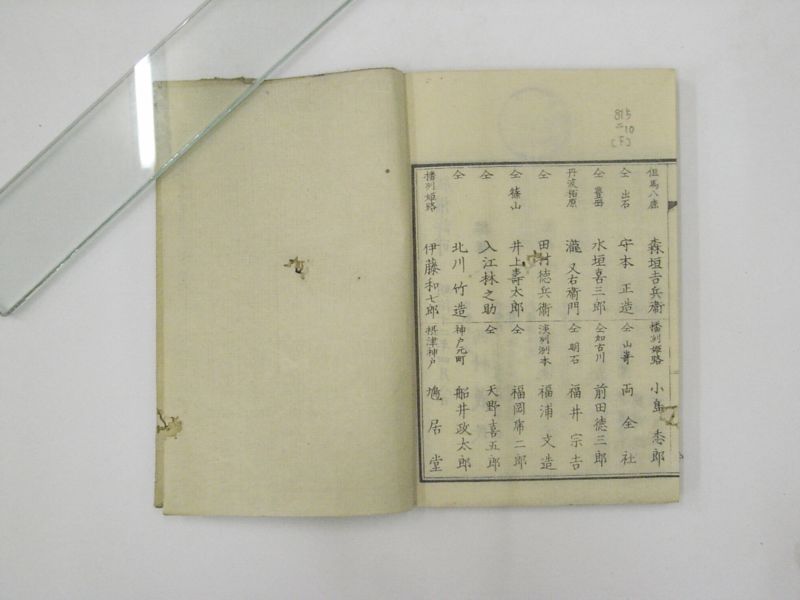 815
ニ10
[F]
但馬八鹿 森垣吉兵衞
仝 出石 守本正造
仝 豊岡 水垣喜三郎
丹波栢原 瀧又右衞門
仝 田村徳兵衞
仝 篠山 井上壽太郎
仝 入江林之助
仝 北川竹造
播列姫路 伊藤和七郎
播列姫路 小島
仝 山嵜 両全社
仝 加古川 前田徳三郎
仝 明石 福井宗吉
淡列洲本 福浦文造
仝 福岡
仝 天野喜五郎
神戸元町 船井政太郎
摂津神戸 鳩居堂